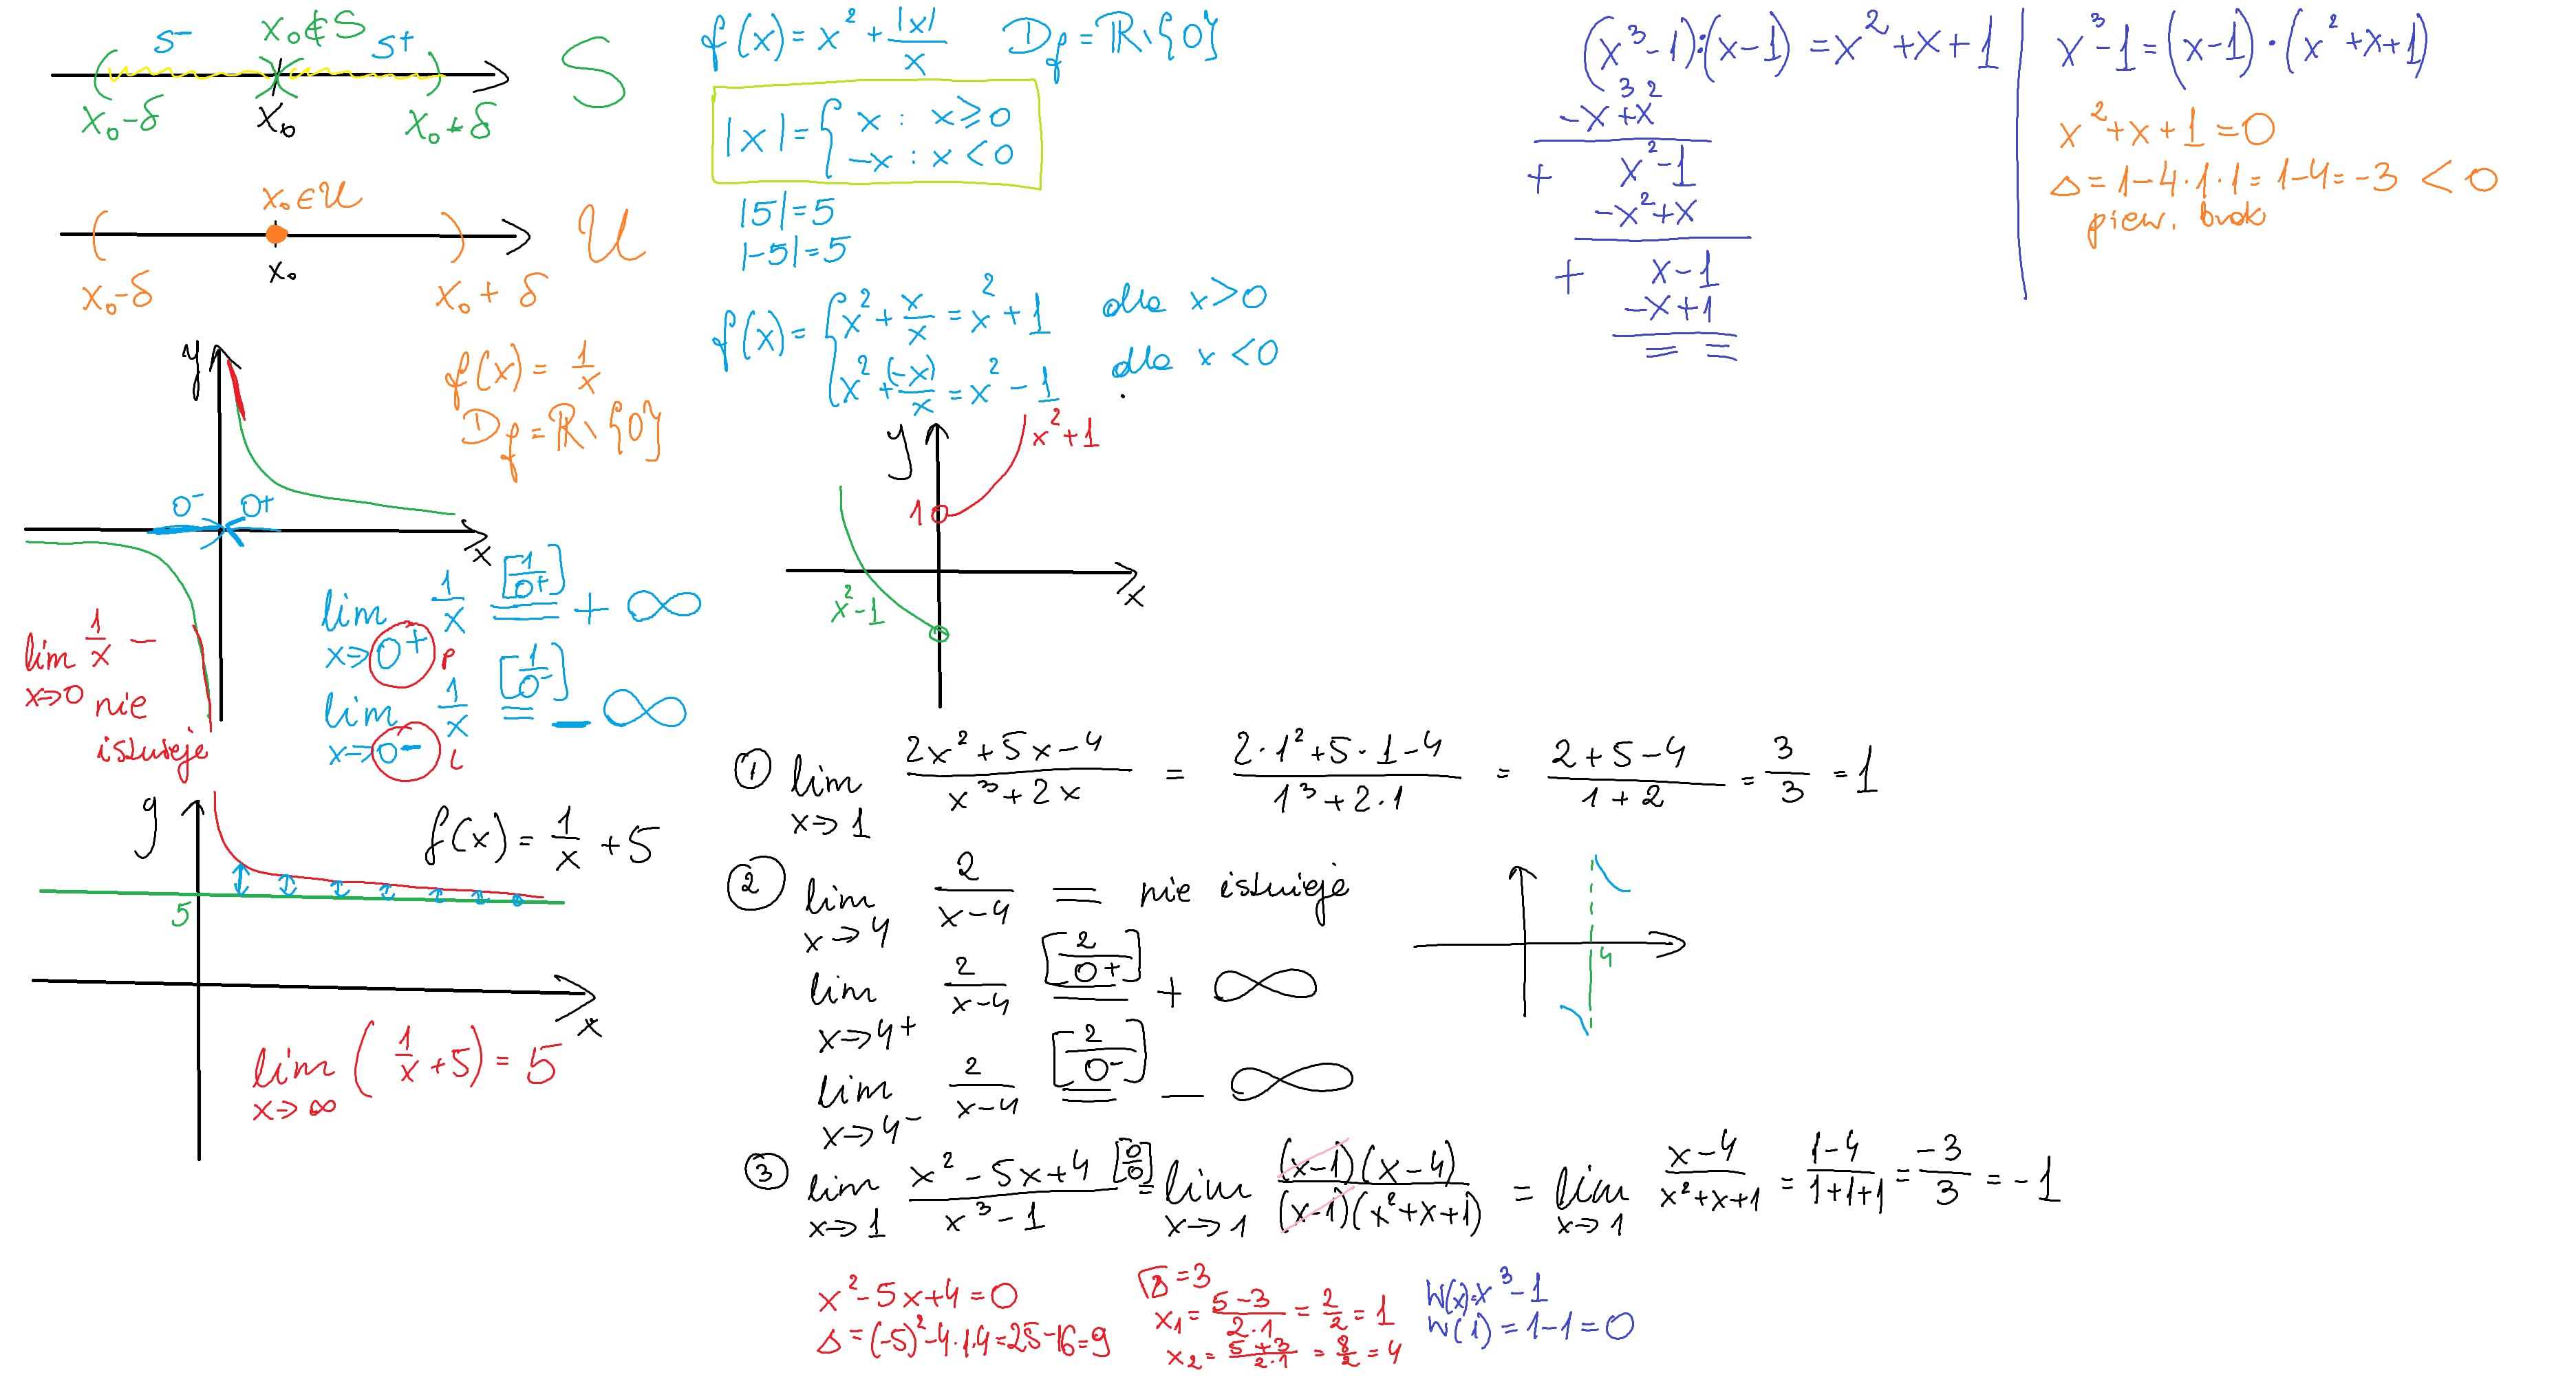 S⁻ x₀∉S S⁺ S
x₀-δ x₀ x₀+δ
x₀∈U U
x₀-δ x₀ x₀+δ
y
f(x) = 1/x
D_f = ℝ\{0}
0⁻ 0⁺
x
lim x→0⁺ 1/x =[1/0⁺] +∞
P
lim x→0⁻ 1/x =[1/0⁻] -∞
L
lim x→0 1/x -
nie
istnieje
y
f(x) = 1/x + 5
5
x
lim x→∞ (1/x + 5) = 5
f(x) = x² + |x|/x D_f = ℝ\{0}
|x| = { x : x ≥ 0
-x : x < 0
|5| = 5
|-5| = 5
f(x) = { x² + x/x = x² + 1 dla x > 0
x² + (-x)/x = x² - 1 dla x < 0
y x²+1
1
x²-1 x
① lim x→1 (2x²+5x-4)/(x³+2x) = (2·1²+5·1-4)/(1³+2·1) = (2+5-4)/(1+2) = 3/3 = 1
② lim x→4 2/(x-4) = nie istnieje
lim x→4⁺ 2/(x-4) =[2/0⁺] +∞
lim x→4⁻ 2/(x-4) =[2/0⁻] -∞
4
③ lim x→1 (x²-5x+4)/(x³-1) =[0/0] lim x→1 (x-1)(x-4)/(x-1)(x²+x+1) = lim x→1 (x-4)/(x²+x+1) = (1-4)/(1+1+1) = -3/3 = -1
x²-5x+4=0
Δ=(-5)²-4·1·4=25-16=9
√Δ=3
x₁=(5-3)/(2·1)=2/2=1
x₂=(5+3)/(2·1)=8/2=4
W(x)=x³-1
W(1)=1-1=0
(x³-1):(x-1)=x²+x+1
-x³+x²
+ x²-1
-x²+x
+ x-1
-x+1
= =
x³-1=(x-1)·(x²+x+1)
x²+x+1=0
Δ=1-4·1·1=1-4=-3<0
pierw. brak